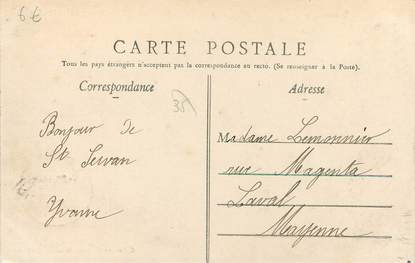 6€
CARTE POSTALE
Tous les pays étrangers n'acceptent pas la correspondance au recto. (Se renseigner à la Poste).
Correspondance
Adresse
35
Bonjour de
St. Servan
Yvonne
Madame Lemonnier
rue Magenta
Laval
Mayenne